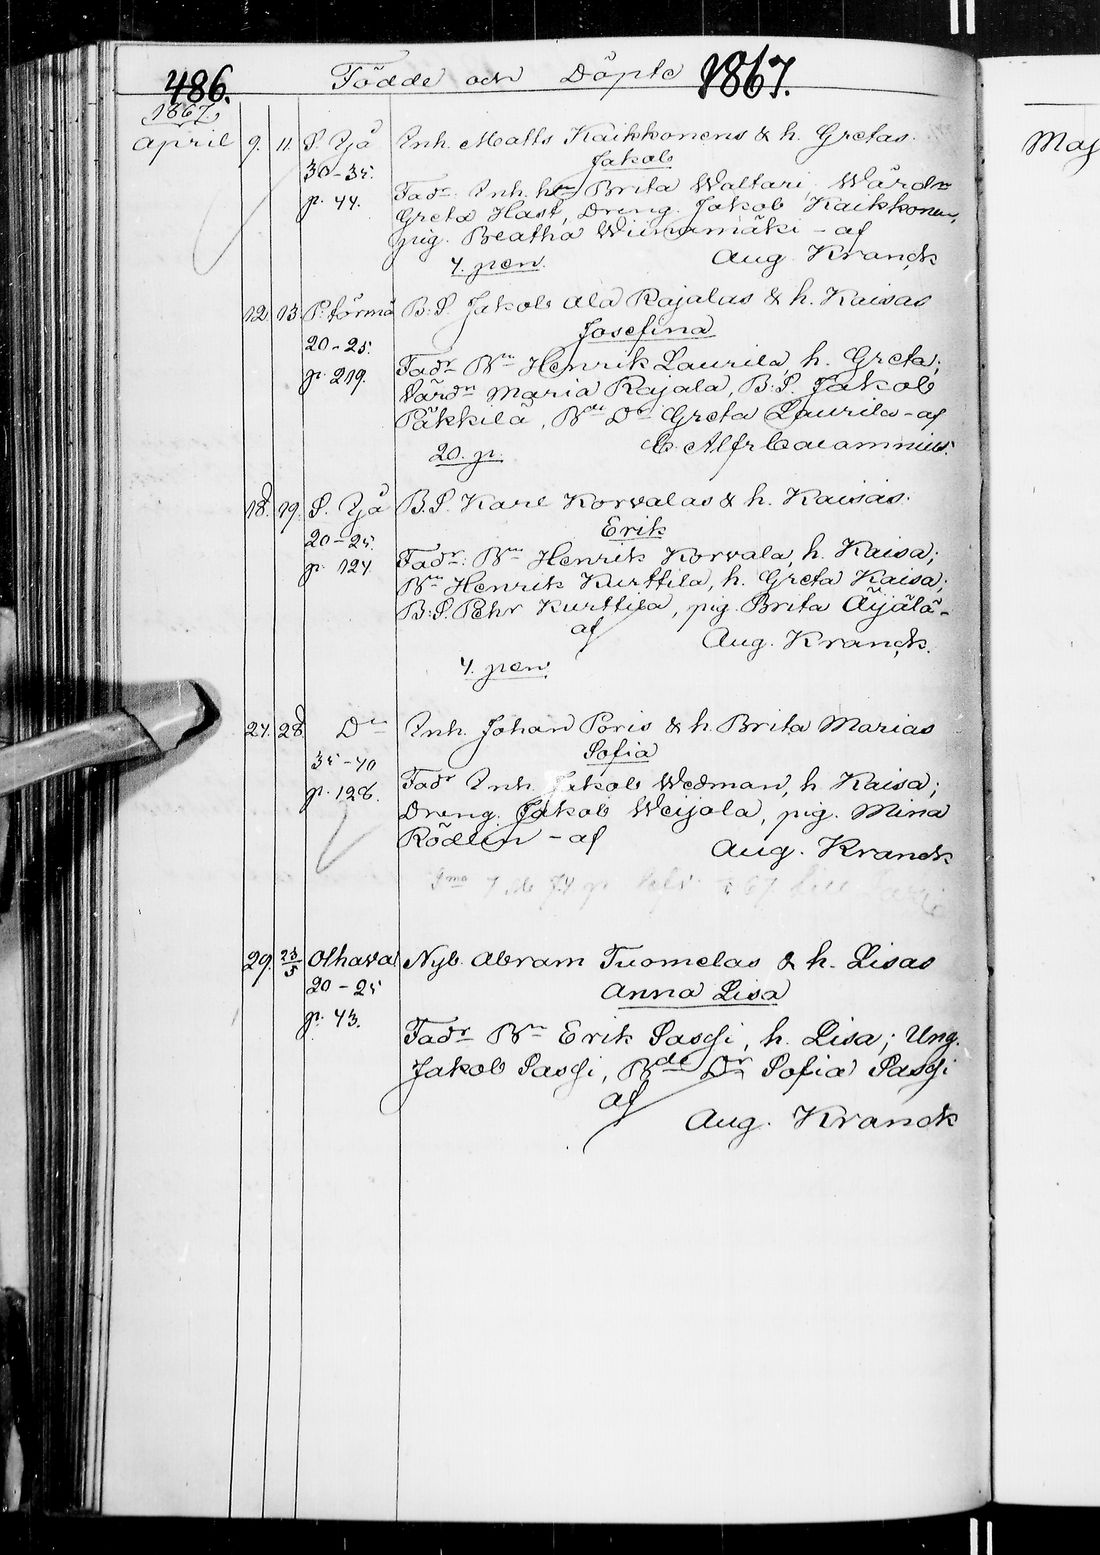 486. Födde och Döpte 1867.
1867
April 9. 11. S. Yjå Inh. Matts Kaikkonens & h. Gretas
30-35. Jakob
p. 44. Fadr Inh. hm Brita Waltari, Wärdn
Greta Hast, Dreng. Jakob Kaikkonen,
pig. Beatha Wiinamäki - af
4. pen. Aug. Kranck
12. 13. P. törmä B.S. Jakob Ala Rajalas & h. Kaisas
20-25. Josefina
p. 219. Fadr Bn Henrik Laurila, h. Greta;
Värdn Maria Rajala, B.S. Jakob
Päkkilä, Bde Dr Greta Laurila - af
20. p. C. Alfr Cacamnius.
18. 19. S. Yjå B.S. Karl Korvalas & h. Kaisas.
20-25. Erik
p. 124. Fadr: Bn Henrik Korvala, h. Kaisa;
Bn Henrik Kurttila, h. Greta Kaisa;
B.S. Pehr Kurttila, pig. Brita Äijälä -
af Aug. Kranck.
4. pen.
27. 28. Do Inh. Johan Poris & h. Brita Marias
35-40 Sofia
p. 128. Fadr Inh. Jakob Wedman, h. Kaisa;
Dreng. Jakob Weijola, pig. Mina
Rödlin - af Aug. Kranck
29. 23/5 Olhava Nyb. Abram Tuomelas & h. Lisas
20-25 Anna Lisa
p. 43. Fadr Bn Erik Sassi, h. Lisa; Ung.
Jakob Sassi, Bde Dr Sofia Sassi
af Aug. Kranck
Maj